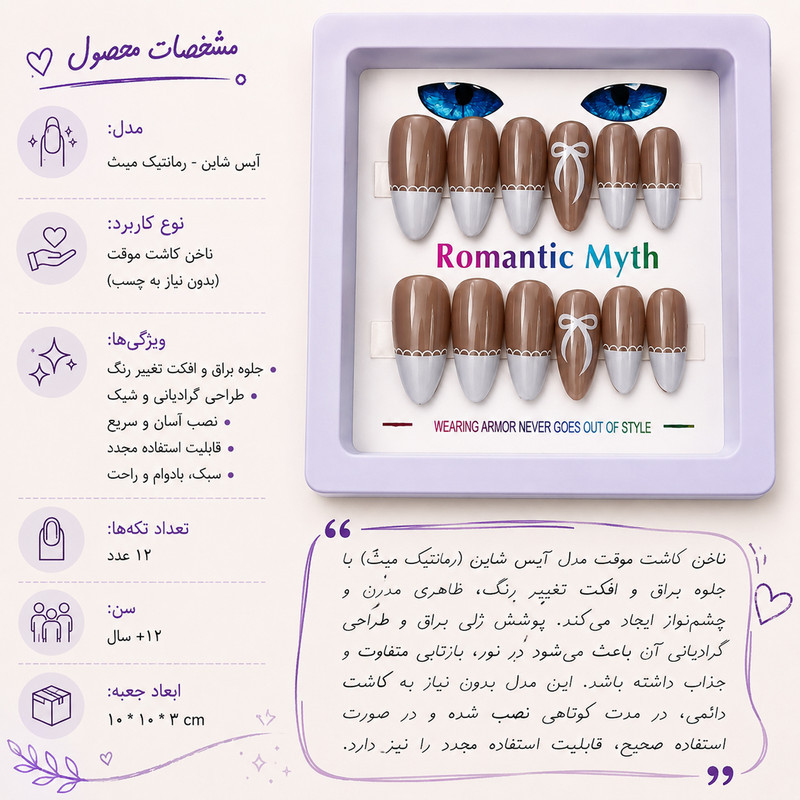 مشخصات محصول
مدل:
آیس شاین - رمانتیک میث
نوع کاربرد:
ناخن کاشت موقت
(بدون نیاز به چسب)
ویژگی‌ها:
• جلوه براق و افکت تغییر رنگ
• طراحی گرادیانی و شیک
• نصب آسان و سریع
• قابلیت استفاده مجدد
• سبک، بادوام و راحت
تعداد تکه‌ها:
۱۲ عدد
سن:
+۱۲ سال
ابعاد جعبه:
۱۰ * ۱۰ * ۳ cm
Romantic Myth
WEARING ARMOR NEVER GOES OUT OF STYLE
ناخن کاشت موقت مدل آیس شاین (رمانتیک میث) با
جلوه براق و افکت تغییر رنگ، ظاهری مدرن و
چشم‌نواز ایجاد می‌کند. پوشش ژلی براق و طراحی
گرادیانی آن باعث می‌شود در نور، بازتابی متفاوت و
جذاب داشته باشد. این مدل بدون نیاز به کاشت
دائمی، در مدت کوتاهی نصب شده و در صورت
استفاده صحیح، قابلیت استفاده مجدد را نیز دارد.